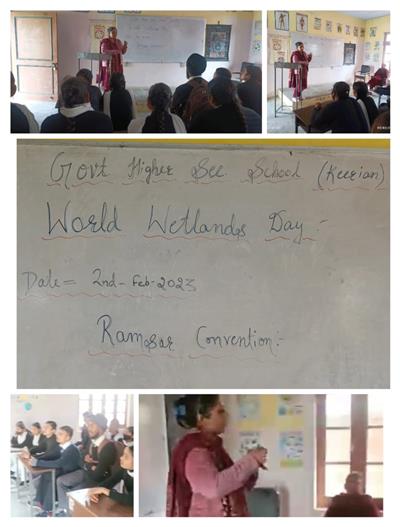 Govt Higher Sec. School (Keerian)
World Wetlands Day:-
Date = 2nd-Feb-2023
Ramsar Convention:-